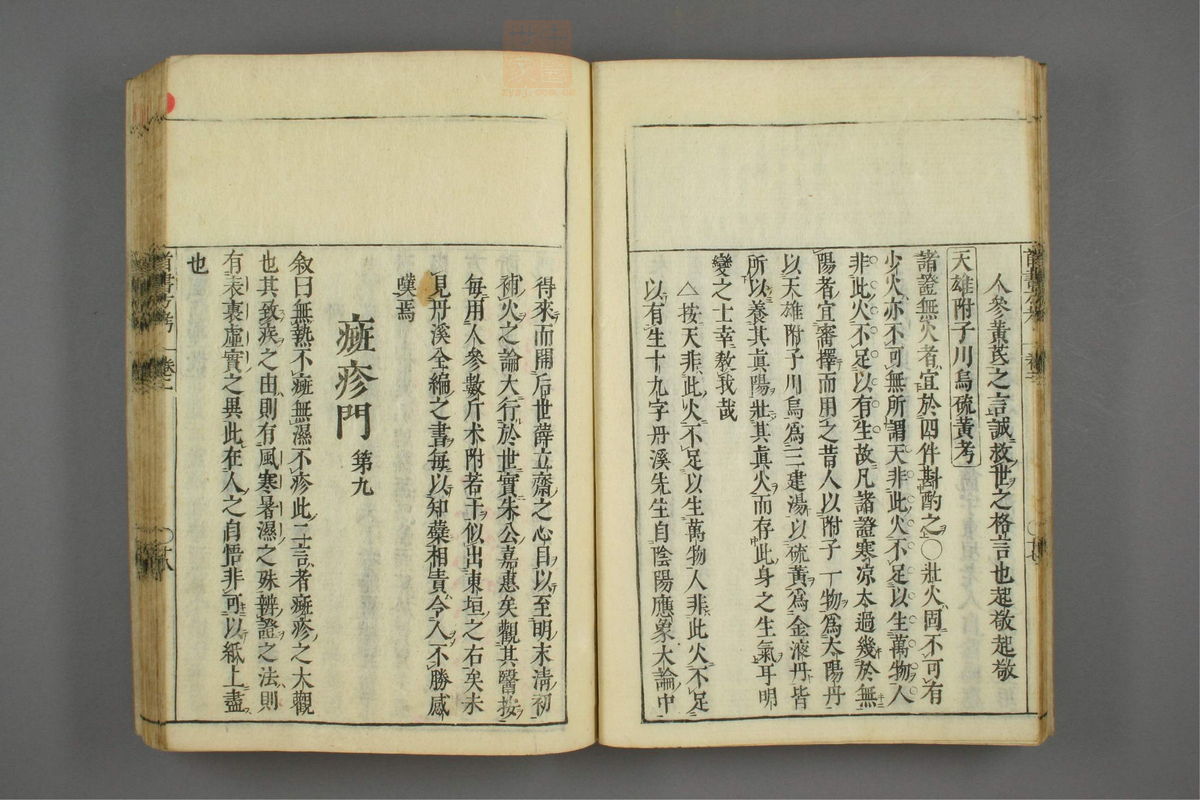 人參黃芪之言誠救世之格言也起敬起敬
天雄附子川烏硫黃考
諸證無火者宜於四件斟酌之〇壯火固不可有
少火亦不可無所謂天非此火不足以生萬物人
非此火不足以有生故凡諸證寒凉太過幾於無
陽者宜審擇而用之昔人以附子一物爲太陽丹
以天雄附子川烏爲三建湯以硫黃爲金液丹皆
所以養其眞陽壯其眞火而存此身之生氣耳明
變之士幸教我哉
△按天非此火不足以生萬物人非此火不足
以有生十九字丹溪先生自陰陽應象大論中
得來而開后世薛立齋之心目以至明末淸初
補火之論大行於世實朱公嘉惠矣觀其醫按
每用人參數斤术附若干似出東垣之右矣未
見丹溪全編之書每以知蘗相責今人不勝感
嘆焉
痲疹門 第九
叙曰無熱不痲無濕不疹此二言者痲疹之大觀
也其致疾之由則有風寒暑濕之殊辨證之法則
有表裏虛實之異此在人之自悟非可以紙上盡
也
首書方考 卷二 〇廿八